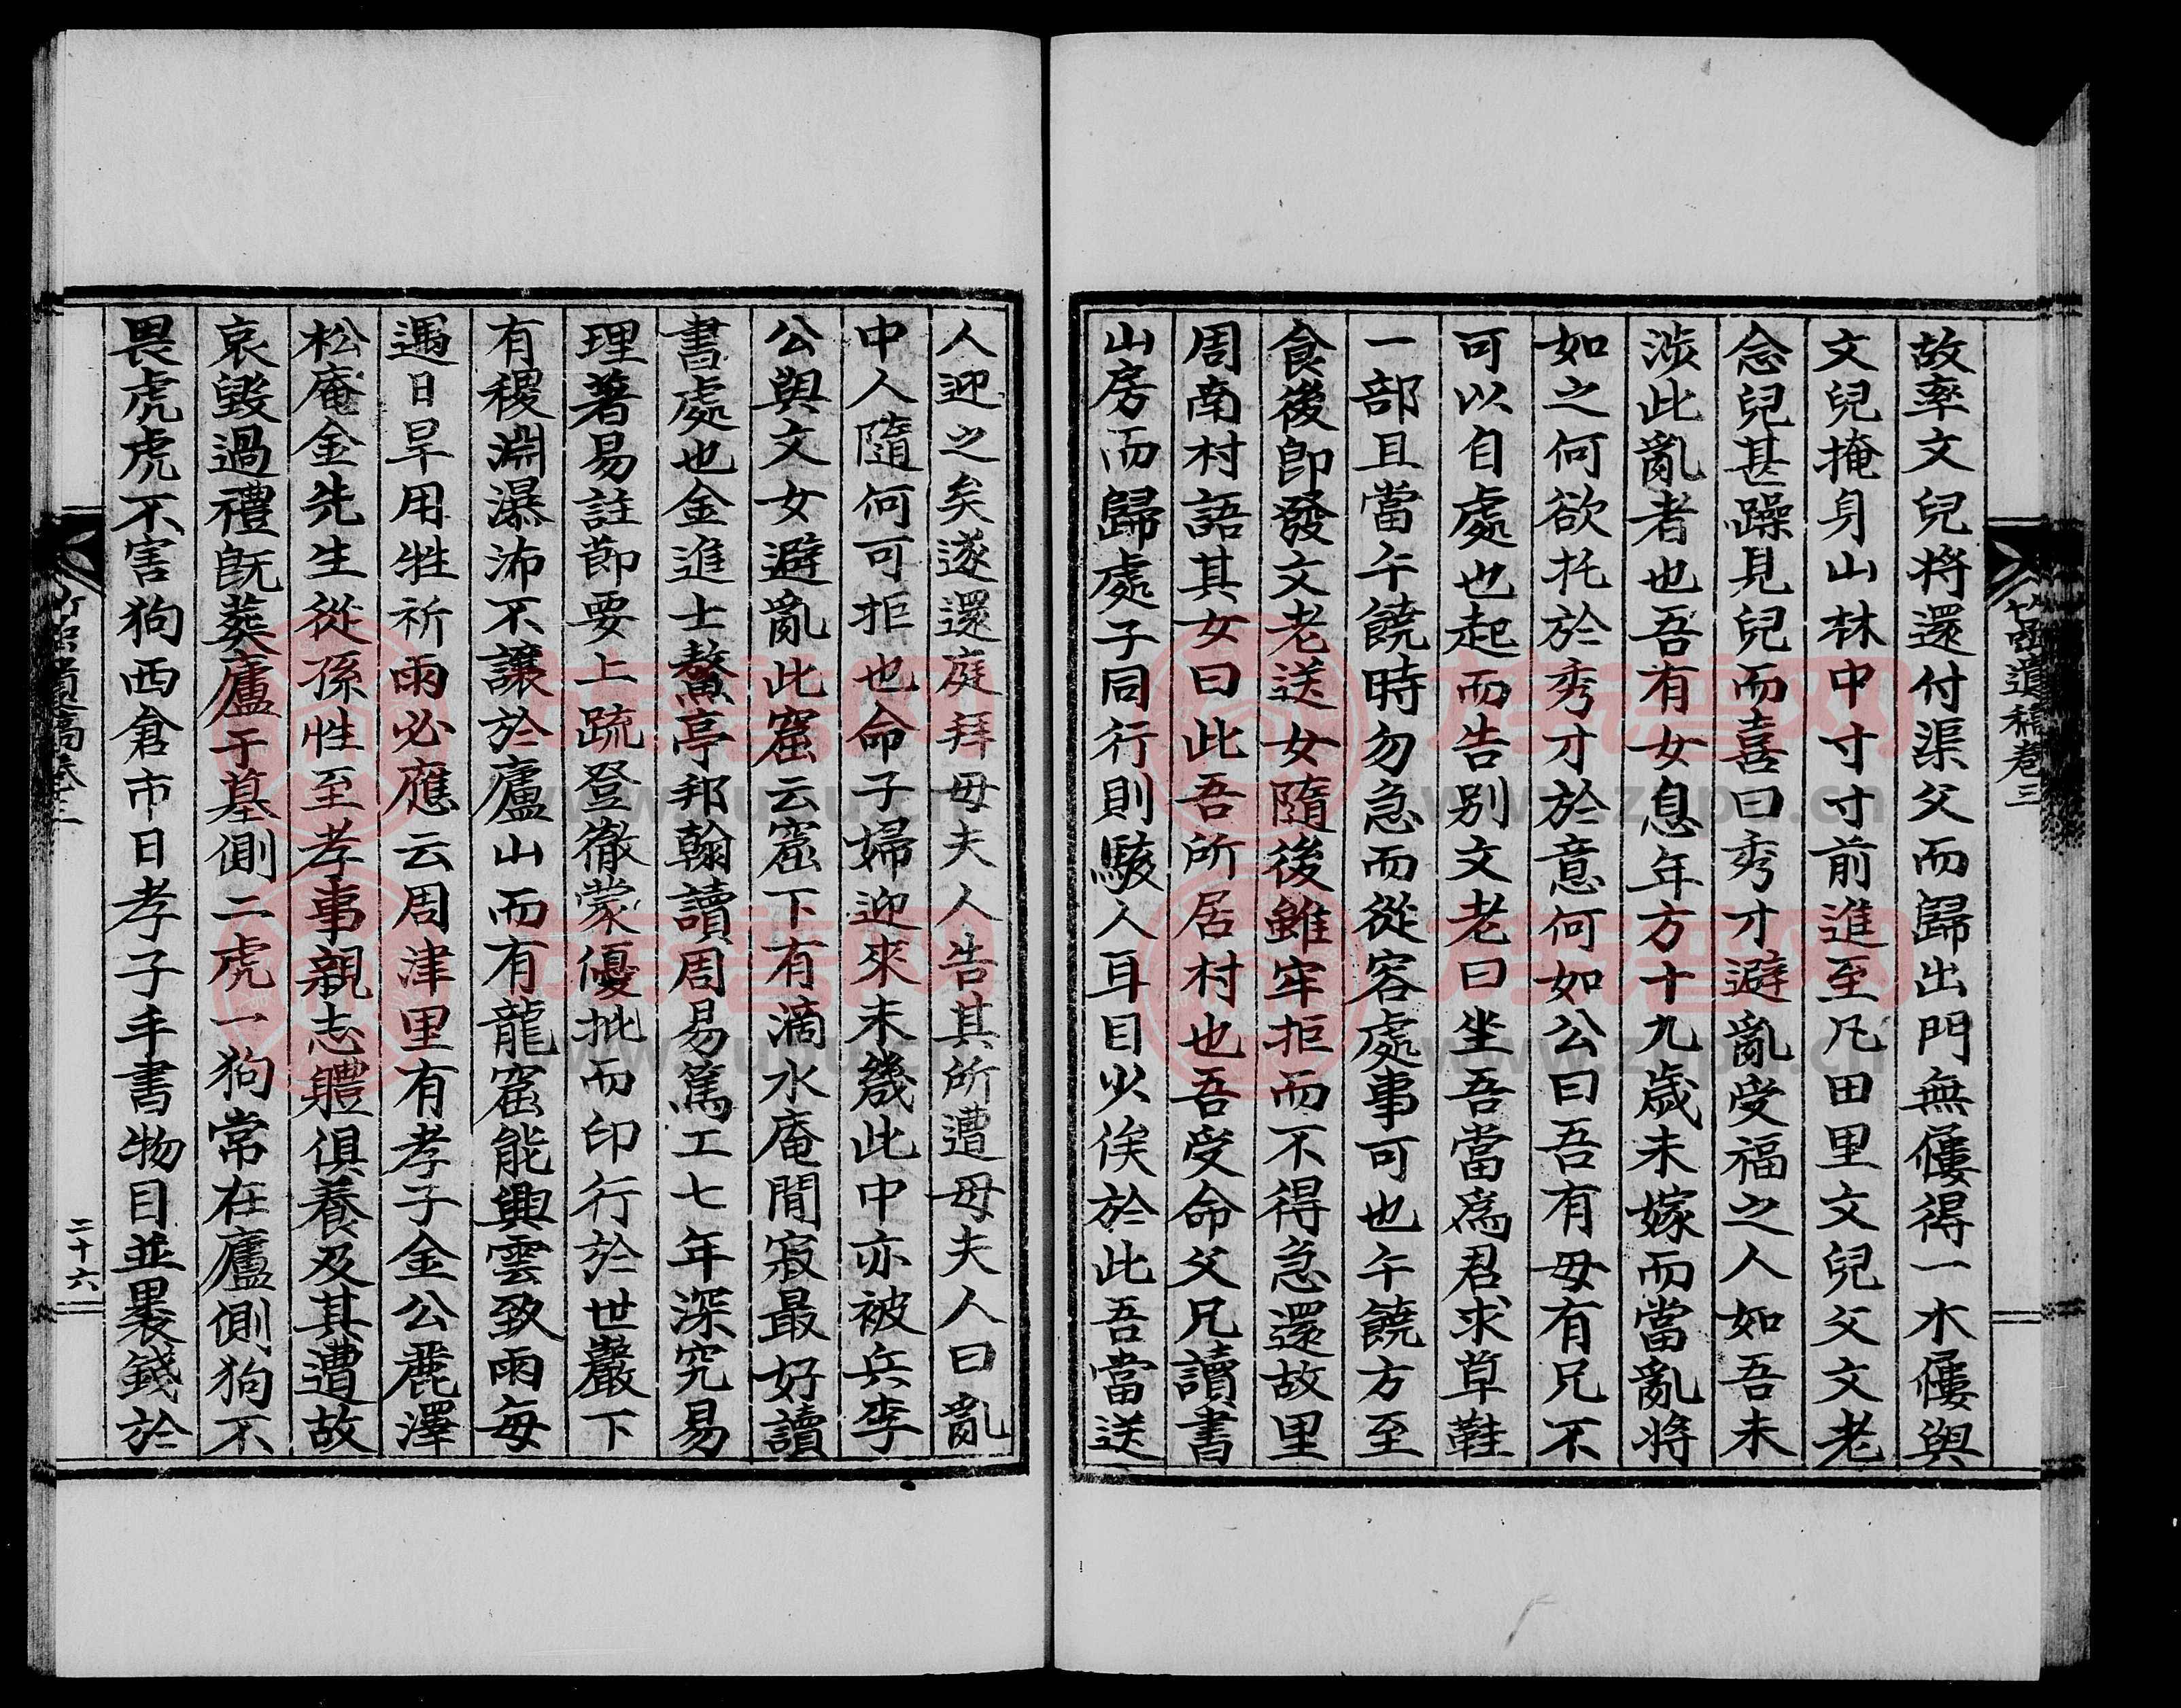 故率文兒將還付渠父而歸出門無僂得一木僂與
文兒掩身山林中寸寸前進至凡田里文兒父文老
念兒甚躁見兒而喜曰秀才避亂受福之人如吾未
涉此亂者也吾有女息年方十九歲未嫁而當亂將
如之何欲托於秀才於意何如公曰吾有母有兄不
可以自處也起而告别文老曰坐吾當爲君求草鞋
一部且當午饒時勿急而從容處事可也午饒方至
食後卽發文老送女隨後雖牢拒而不得急還故里
周南村語其女曰此吾所居村也吾受命父兄讀書
山房而歸處子同行則駭人耳目少俟於此吾當送
遺稿卷三
人迎之矣遂還庭拜母夫人告其所遭母夫人曰亂
中人隨何可拒也命子婦迎來未幾此中亦被兵李
公與文女避亂此窟云窟下有滴水庵閒寂最好讀
書處也金進士鰲亭邦翰讀周易篤工七年深究易
理著易註節要上疏登徹蒙優批而印行於世巖下
有稷淵瀑沛不讓於廬山而有龍窟能興雲致雨每
遇日旱用牲祈雨必應云周津里有孝子金公麗澤
松庵金先生從孫性至孝事親志軆俱養及其遭故
哀毀過禮旣葬廬于墓側二虎一狗常在廬側狗不
畏虎虎不害狗西倉市日孝子手書物目並裹錢於
遺稿卷三
二十六